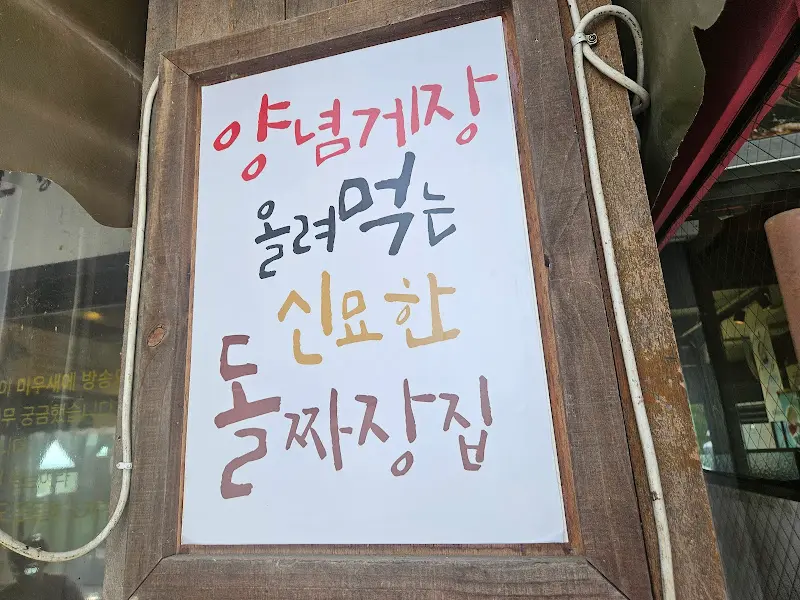 양념게장
올려먹는
신묘한
돌짜장집
미우새에 방송
궁금했습니다